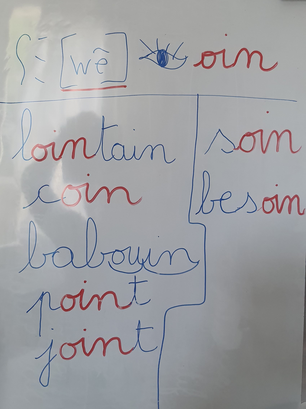 [wẽ] oin
lointain
coin
babouin
point
joint
soin
besoin